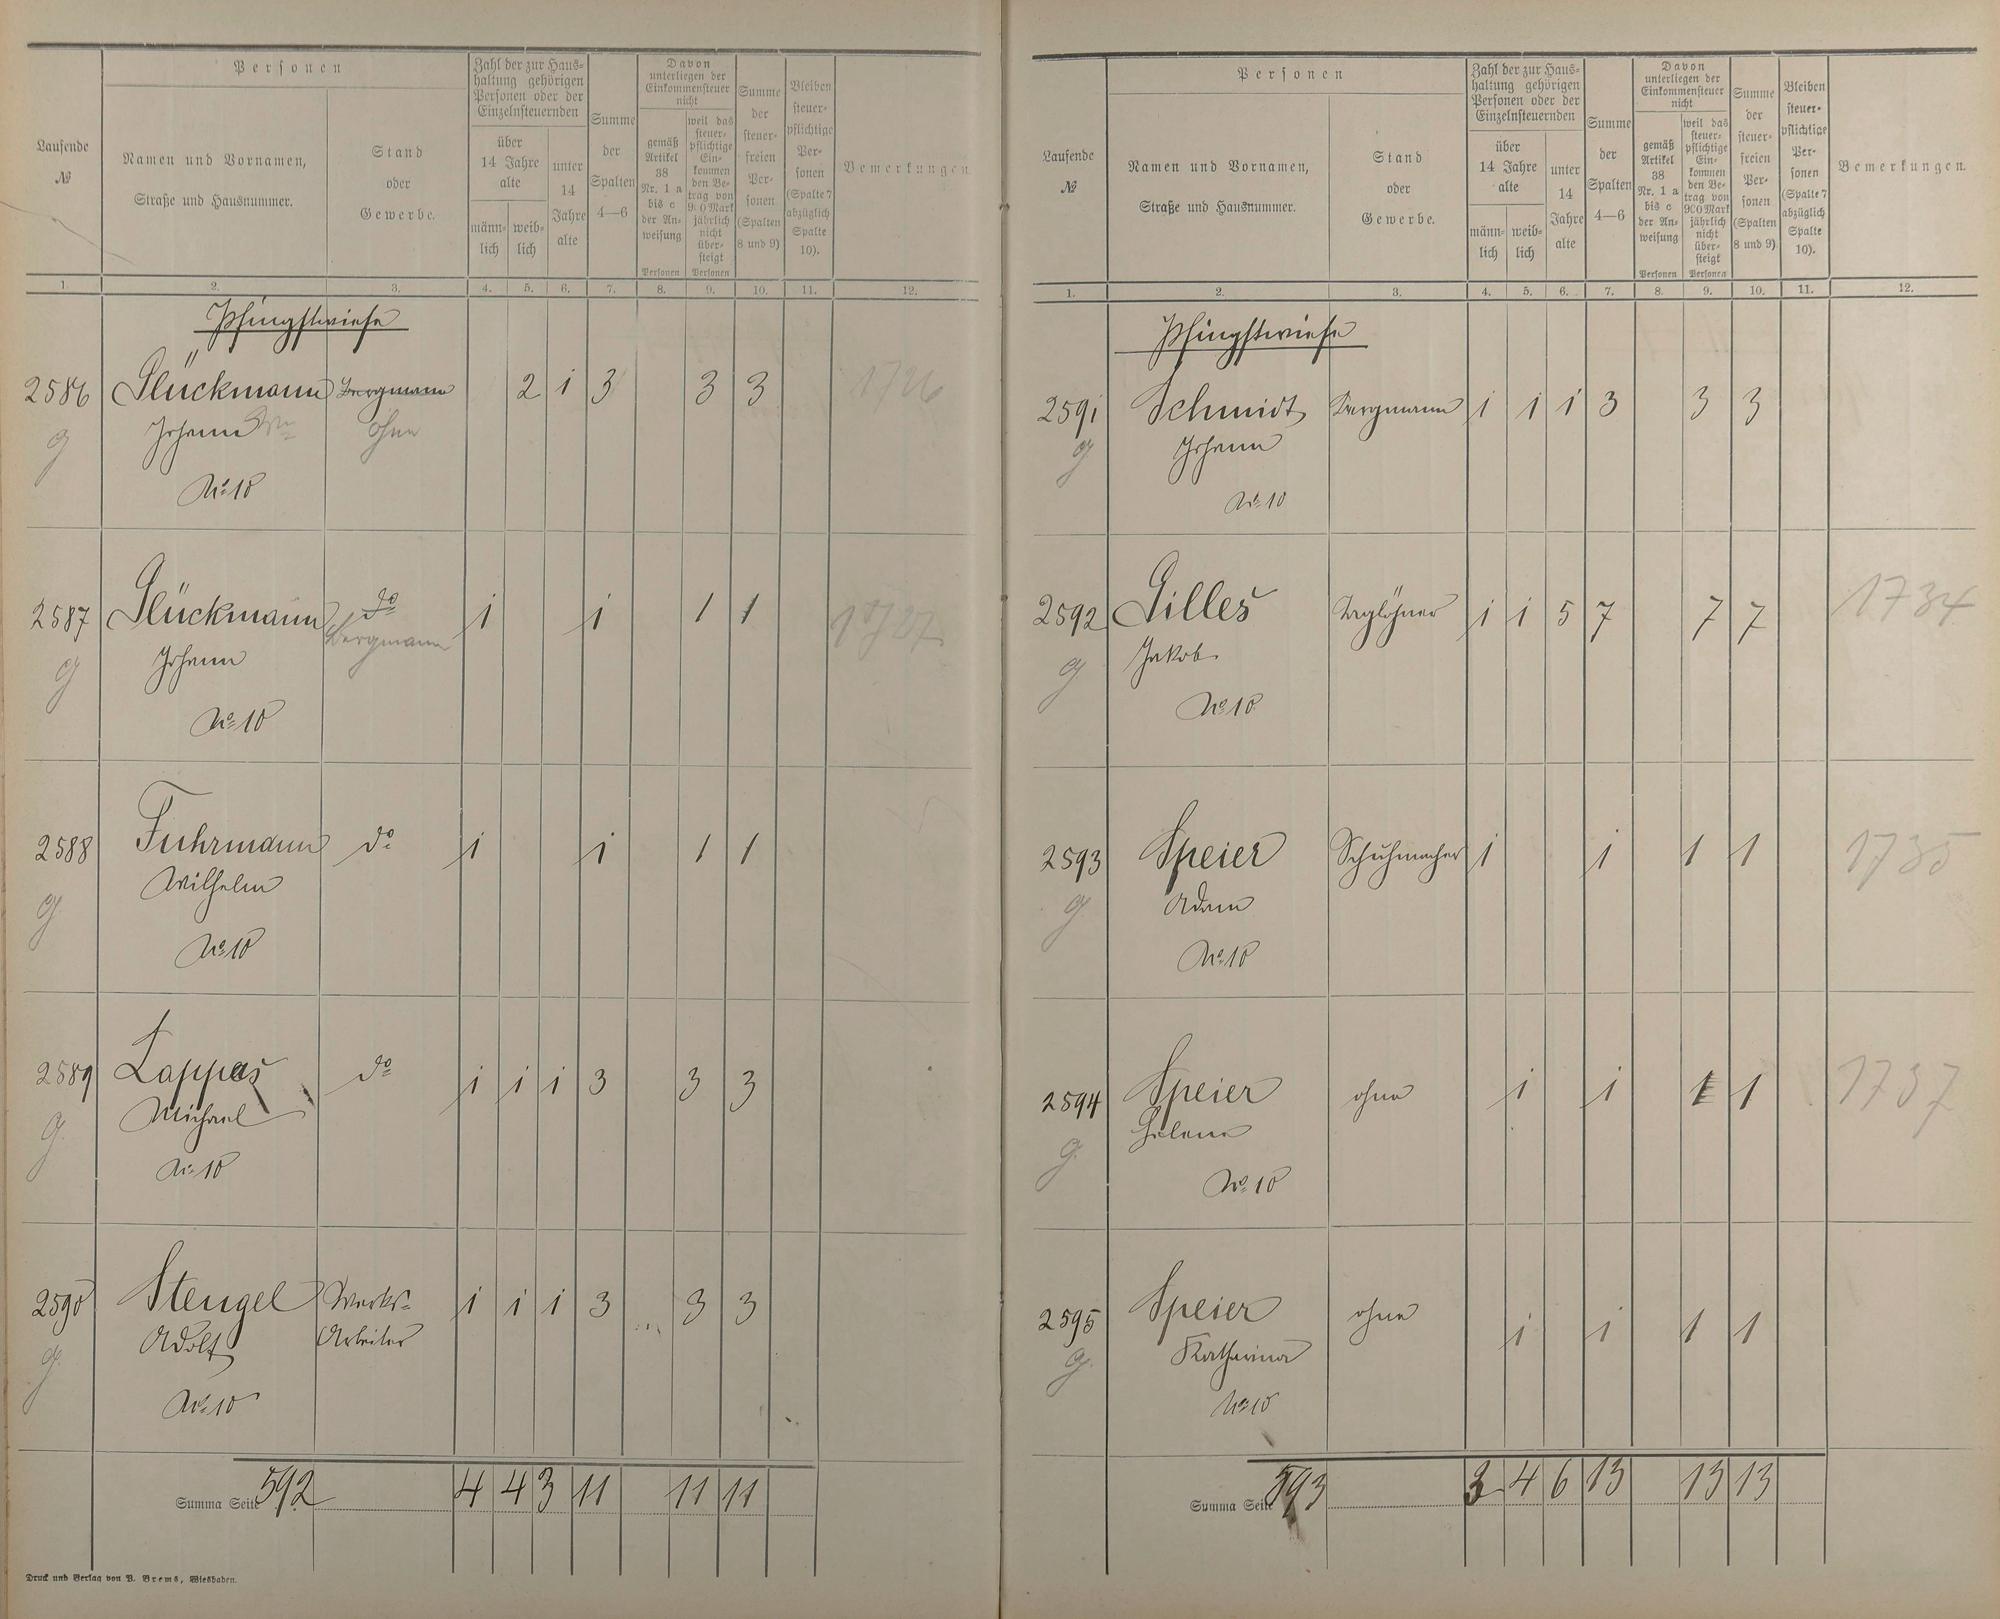 Laufende №
Personen
Namen und Vornamen,
Straße und Hausnummer.
Stand
oder
Gewerbe.
Zahl der zur Haus-
haltung gehörigen
Personen oder der
Einzelnsteuernden
über
14 Jahre
alte
männ-
lich
weib-
lich
unter
14
Jahre
alte
Summe
der
Spalten
4—6
Davon
unterliegen der
Einkommensteuer
nicht
gemäß
Artikel
38
Nr. 1 a
bis c
der An-
weisung
Personen
weil das
steuer-
pflichtige
Ein-
kommen
den Be-
trag von
900 Mark
jährlich
nicht
über-
steigt
Personen
Summe
der
steuer-
freien
Per-
sonen
(Spalten
8 und 9)
Bleiben
steuer-
pflichtige
Per-
sonen
(Spalte 7
abzüglich
Spalte
10).
Bemerkungen.
1. 2. 3. 4. 5. 6. 7. 8. 9. 10. 11. 12.
Pfingstwiese
2586 Glückmann Bergmann 2 1 3 3 3 1726
g Johann Ww ohne
No 10
2587 Glückmann do 1 1 1 1 1727
g Johann Bergmann
No 10
2588 Fuhrmann do 1 1 1 1
g Wilhelm
No 10
2589 Lappas do 1 1 1 3 3 3
g Michael
No 10
2590 Stengel Werks- 1 1 1 3 3 3
g Adolf Arbeiter
No 10
Summa Seite 592 4 4 3 11 11 11
Druck und Verlag von P. Brems, Wiesbaden.
Laufende №
Personen
Namen und Vornamen,
Straße und Hausnummer.
Stand
oder
Gewerbe.
Zahl der zur Haus-
haltung gehörigen
Personen oder der
Einzelnsteuernden
über
14 Jahre
alte
männ-
lich
weib-
lich
unter
14
Jahre
alte
Summe
der
Spalten
4—6
Davon
unterliegen der
Einkommensteuer
nicht
gemäß
Artikel
38
Nr. 1 a
bis c
der An-
weisung
Personen
weil das
steuer-
pflichtige
Ein-
kommen
den Be-
trag von
900 Mark
jährlich
nicht
über-
steigt
Personen
Summe
der
steuer-
freien
Per-
sonen
(Spalten
8 und 9)
Bleiben
steuer-
pflichtige
Per-
sonen
(Spalte 7
abzüglich
Spalte
10).
Bemerkungen.
1. 2. 3. 4. 5. 6. 7. 8. 9. 10. 11. 12.
Pfingstwiese
2591 Schmidt Bergmann 1 1 1 3 3 3
g Johann
No 10
2592 Gilles Taglöhner 1 1 5 7 7 7 1734
g Jakob
No 10
2593 Speier Schuhmacher 1 1 1 1 1735
g Adam
No 10
2594 Speier ohne 1 1 1 1 1737
g Helene
No 10
2595 Speier ohne 1 1 1 1
g Katharina
No 10
Summa Seite 593 3 4 6 13 13 13